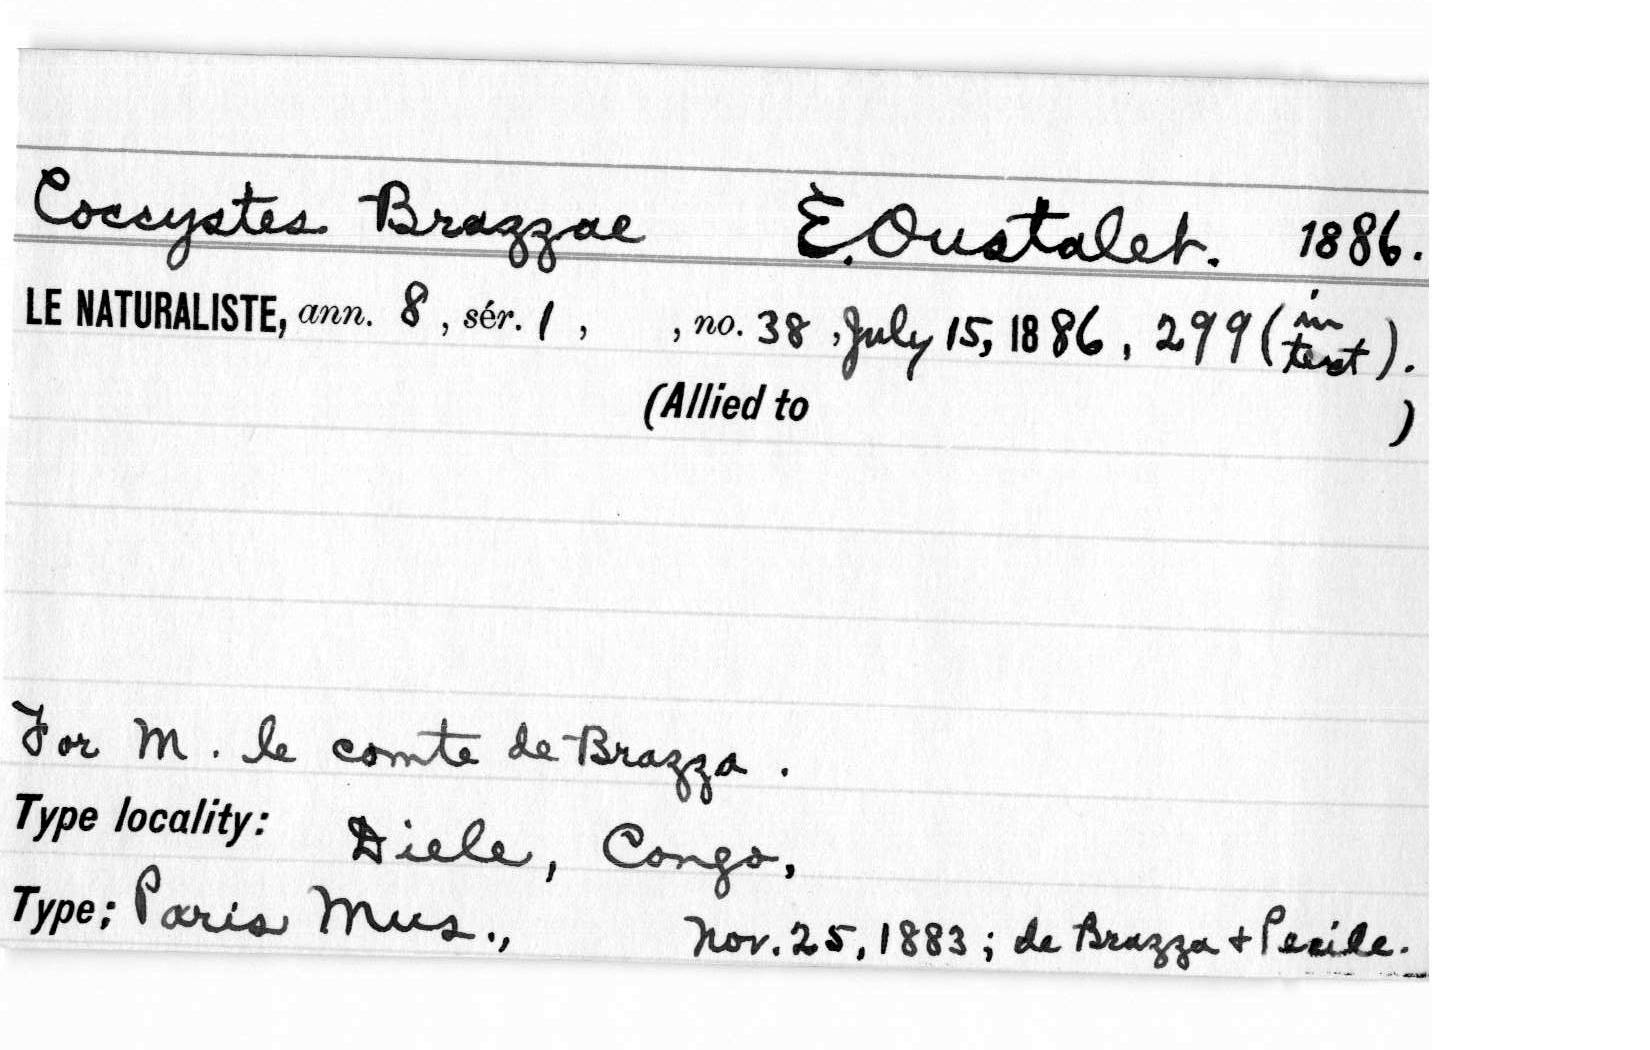 Coccystes Brazzae E. Oustalet. 1886.
LE NATURALISTE, ann. 8, sér. 1, , no. 38, July 15, 1886, 299 (in text).
(Allied to )
For M. le comte de Brazza.
Type locality: Diele, Congo,
Type; Paris Mus., Nov. 25, 1883; de Brazza + Pecile.